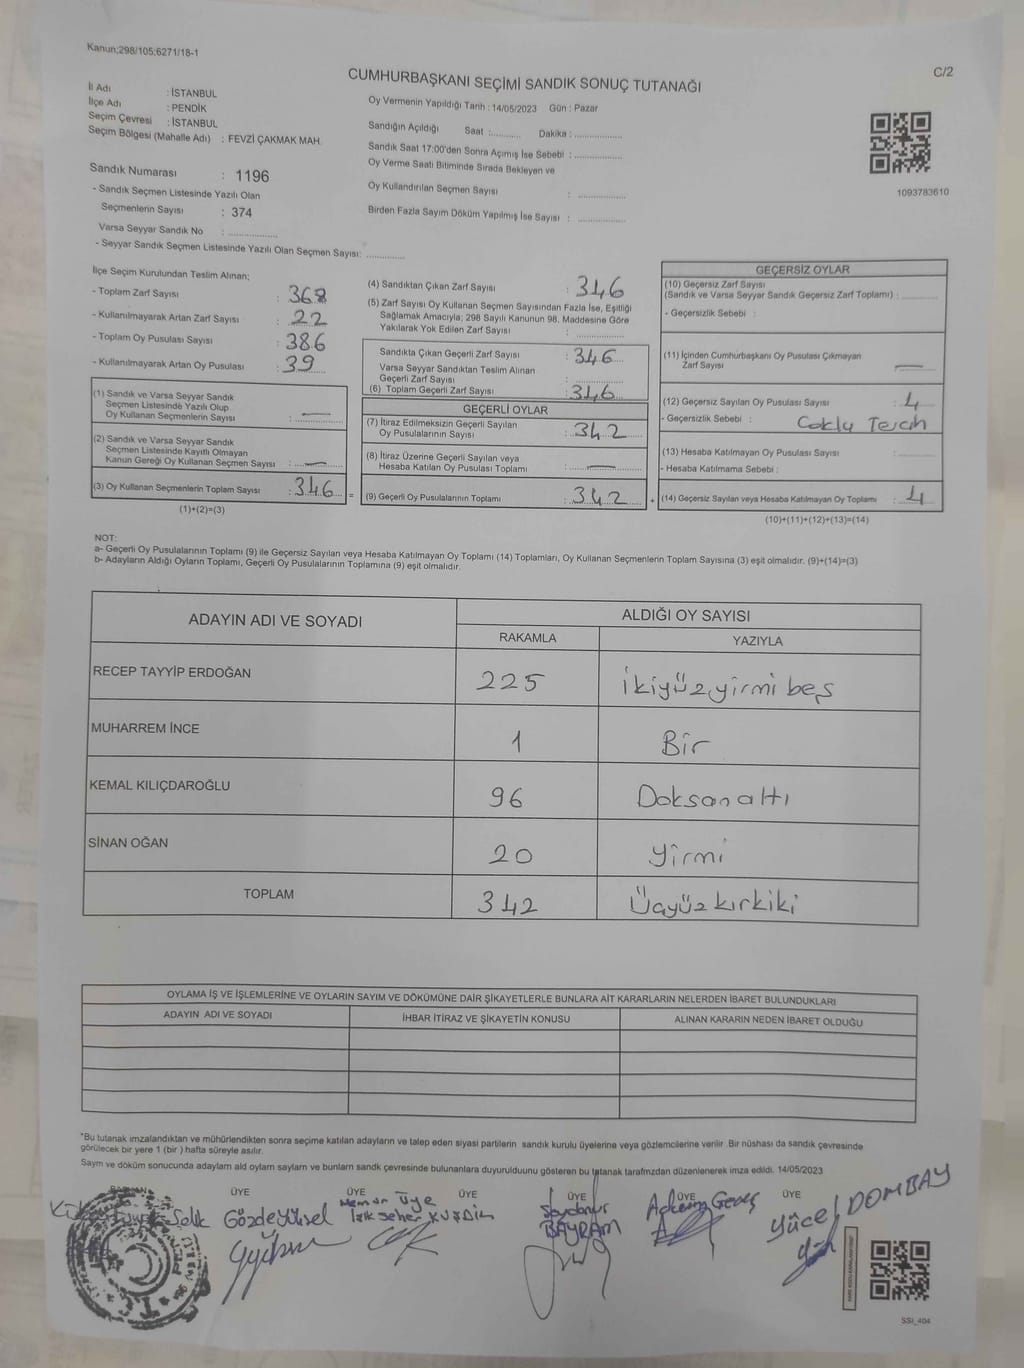 Kanun;298/105;6271/18-1
C/2
CUMHURBAŞKANI SEÇİMİ SANDIK SONUÇ TUTANAĞI
İl Adı : İSTANBUL
İlçe Adı : PENDİK
Seçim Çevresi : İSTANBUL
Seçim Bölgesi (Mahalle Adı) : FEVZİ ÇAKMAK MAH.
Oy Vermenin Yapıldığı Tarih : 14/05/2023 Gün : Pazar
Sandığın Açıldığı Saat :........... Dakika :..................
Sandık Saat 17:00'den Sonra Açımış İse Sebebi :..................
Oy Verme Saati Bitiminde Sırada Bekleyen ve
Oy Kullandırılan Seçmen Sayısı : ..................
Birden Fazla Sayım Döküm Yapılmış İse Sayısı : ..................
1093783610
Sandık Numarası : 1196
- Sandık Seçmen Listesinde Yazılı Olan
Seçmenlerin Sayısı : 374
Varsa Seyyar Sandık No : ..................
- Seyyar Sandık Seçmen Listesinde Yazılı Olan Seçmen Sayısı: ..............
İlçe Seçim Kurulundan Teslim Alınan;
- Toplam Zarf Sayısı : 368
- Kullanılmayarak Artan Zarf Sayısı : 22
- Toplam Oy Pusulası Sayısı : 386
- Kullanılmayarak Artan Oy Pusulası : 39
(1) Sandık ve Varsa Seyyar Sandık
Seçmen Listesinde Yazılı Olup
Oy Kullanan Seçmenlerin Sayısı : —
(2) Sandık ve Varsa Seyyar Sandık
Seçmen Listesinde Kayıtlı Olmayan
Kanun Gereği Oy Kullanan Seçmen Sayısı : —
(3) Oy Kullanan Seçmenlerin Toplam Sayısı : 346 =
(1)+(2)=(3)
(4) Sandıktan Çıkan Zarf Sayısı : 346
(5) Zarf Sayısı Oy Kullanan Seçmen Sayısından Fazla İse, Eşitliği
Sağlamak Amacıyla; 298 Sayılı Kanunun 98. Maddesine Göre
Yakılarak Yok Edilen Zarf Sayısı : ..............
Sandıkta Çıkan Geçerli Zarf Sayısı : 346
Varsa Seyyar Sandıktan Teslim Alınan
Geçerli Zarf Sayısı : ..............
(6) Toplam Geçerli Zarf Sayısı : 346
GEÇERLİ OYLAR
(7) İtiraz Edilmeksizin Geçerli Sayılan
Oy Pusulalarının Sayısı : 342
(8) İtiraz Üzerine Geçerli Sayılan veya
Hesaba Katılan Oy Pusulası Toplamı : —
(9) Geçerli Oy Pusulalarının Toplamı : 342 +
GEÇERSİZ OYLAR
(10) Geçersiz Zarf Sayısı
(Sandık ve Varsa Seyyar Sandık Geçersiz Zarf Toplamı) : ..........
- Geçersizlik Sebebi :
(11) İçinden Cumhurbaşkanı Oy Pusulası Çıkmayan
Zarf Sayısı : —
(12) Geçersiz Sayılan Oy Pusulası Sayısı : 4
- Geçersizlik Sebebi : Coklu Tercih
(13) Hesaba Katılmayan Oy Pusulası Sayısı : ..........
- Hesaba Katılmama Sebebi :
(14) Geçersiz Sayılan veya Hesaba Katılmayan Oy Toplamı : 4
(10)+(11)+(12)+(13)=(14)
NOT:
a- Geçerli Oy Pusulalarının Toplamı (9) ile Geçersiz Sayılan veya Hesaba Katılmayan Oy Toplamı (14) Toplamları, Oy Kullanan Seçmenlerin Toplam Sayısına (3) eşit olmalıdır. (9)+(14)=(3)
b- Adayların Aldığı Oyların Toplamı, Geçerli Oy Pusulalarının Toplamına (9) eşit olmalıdır.
ADAYIN ADI VE SOYADI ALDIĞI OY SAYISI
RAKAMLA YAZIYLA
RECEP TAYYİP ERDOĞAN 225 İkiyüzyirmi beş
MUHARREM İNCE 1 Bir
KEMAL KILIÇDAROĞLU 96 Doksanaltı
SİNAN OĞAN 20 yirmi
TOPLAM 342 Üçyüzkırkiki
OYLAMA İŞ VE İŞLEMLERİNE VE OYLARIN SAYIM VE DÖKÜMÜNE DAİR ŞİKAYETLERLE BUNLARA AİT KARARLARIN NELERDEN İBARET BULUNDUKLARI
ADAYIN ADI VE SOYADI İHBAR İTİRAZ VE ŞİKAYETİN KONUSU ALINAN KARARIN NEDEN İBARET OLDUĞU
*Bu tutanak imzalandıktan ve mühürlendikten sonra seçime katılan adayların ve talep eden siyasi partilerin sandık kurulu üyelerine veya gözlemcilerine verilir .Bir nüshası da sandık çevresinde
görülecek bir yere 1 (bir ) hafta süreyle asılır.
Saym ve döküm sonucunda adaylam ald oylam saylam ve bunlam sandk çevresinde bulunanlara duyurulduunu gösteren bu tutanak tarafmzdan düzenlenerek imza edildi. 14/05/2023
ÜYE ÜYE ÜYE ÜYE ÜYE ÜYE
Gözde Yüksel
Memur Üye
Seher KUŞDİL
BAYRAM
Yücel DOMBAY
SSI_404